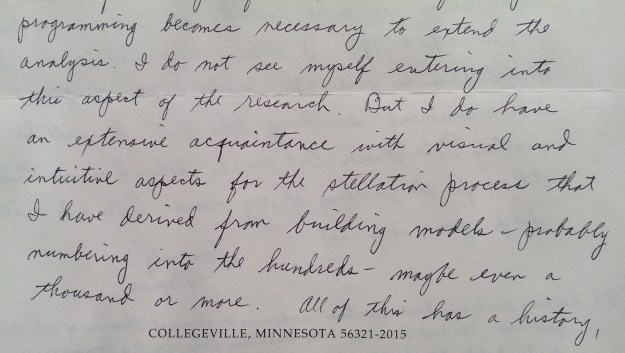 programming becomes necessary to extend the
analysis. I do not see myself entering into
this aspect of the research. But I do have
an extensive acquaintance with visual and
intuitive aspects for the stellation process that
I have derived from building models – probably
numbering into the hundreds – maybe even a
thousand or more. All of this has a history,
COLLEGEVILLE, MINNESOTA 56321-2015